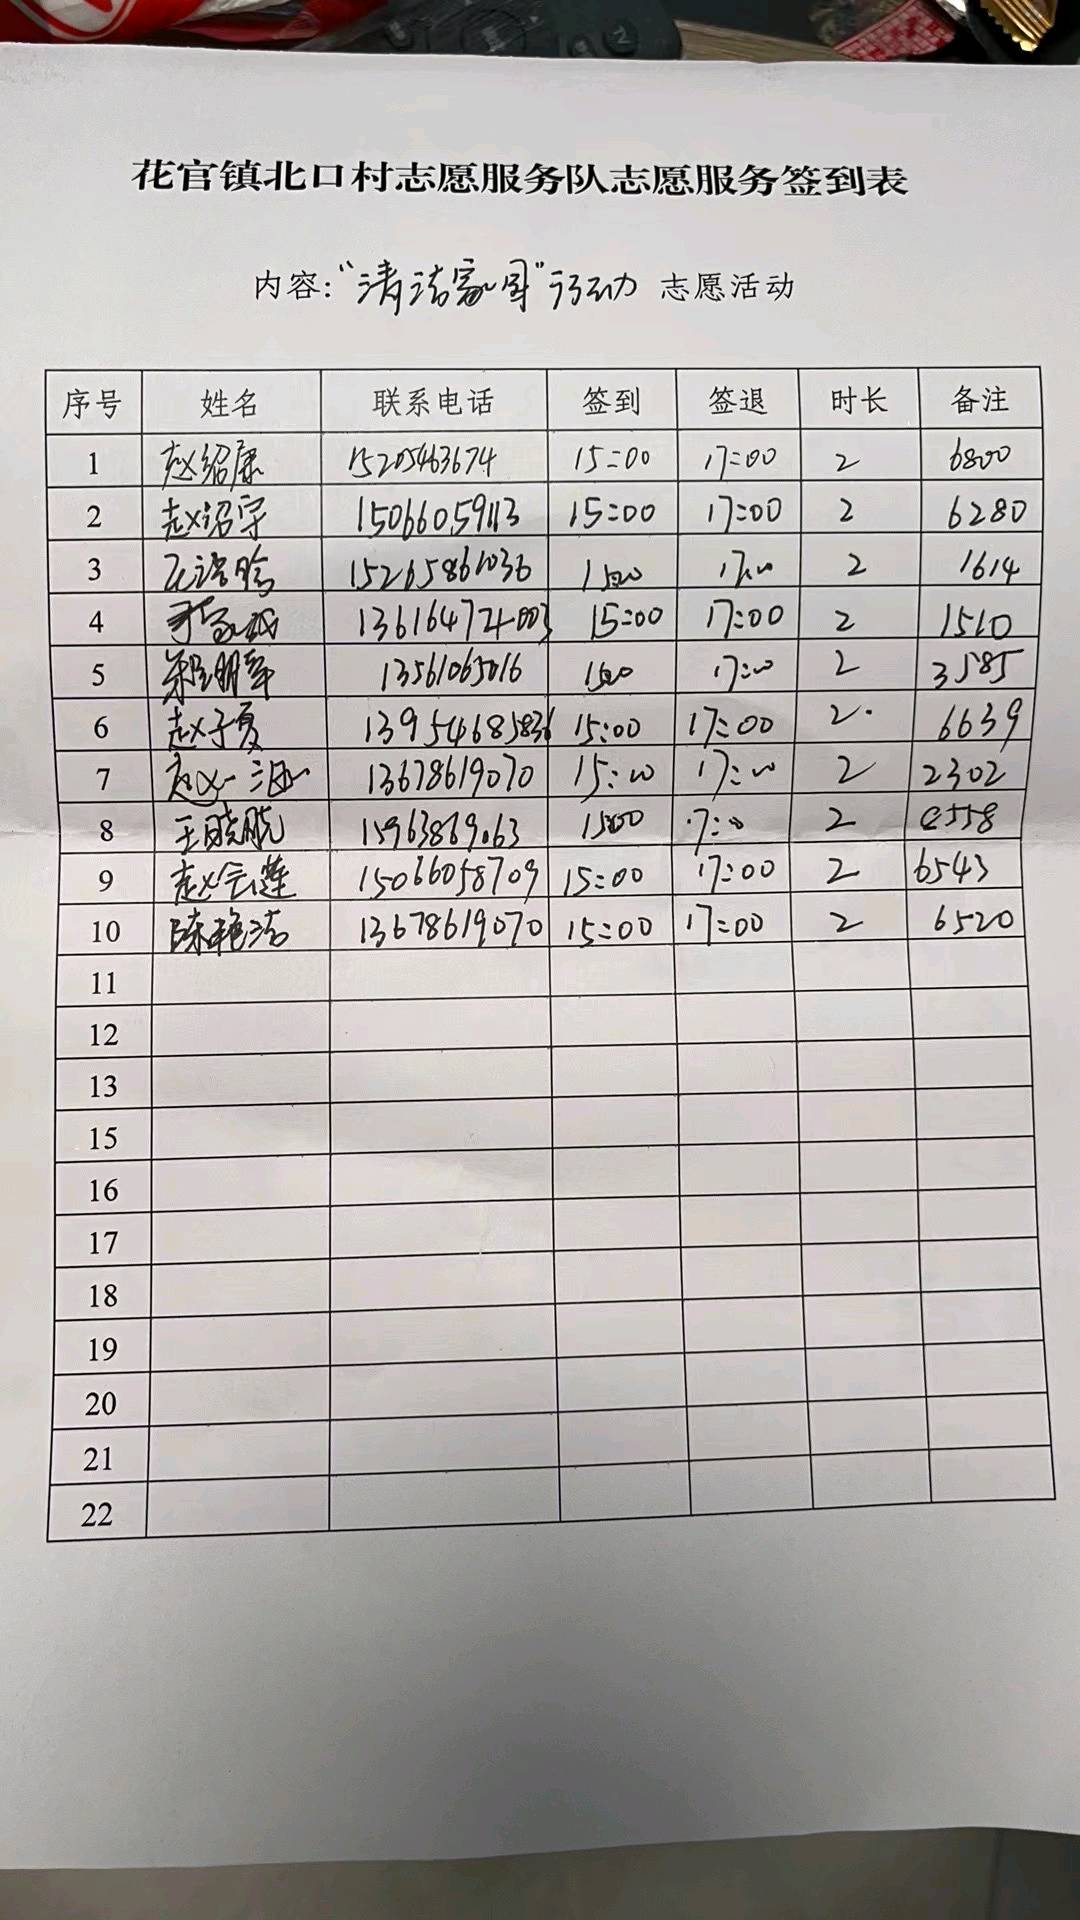 花官镇北口村志愿服务队志愿服务签到表
内容:“清洁家园”行动 志愿活动
序号 姓名 联系电话 签到 签退 时长 备注
1 赵绍康 15205463674 15:00 17:00 2 6800
2 赵绍宇 15066059113 15:00 17:00 2 6280
3 15265861036 1500 17:00 2 1614
4 15:00 17:00 2 1510
5 13561065016 1500 17:00 2 3585
6 赵子夏 13954685836 15:00 17:00 2. 6639
7 赵 13678619070 15:00 17:00 2 2302
8 王晓晓 15963869063 1500 17:0 2 2558
9 赵会莲 15066058709 15:00 17:00 2 6543
10 陈艳洁 13678619070 15:00 17:00 2 6520
11
12
13
15
16
17
18
19
20
21
22